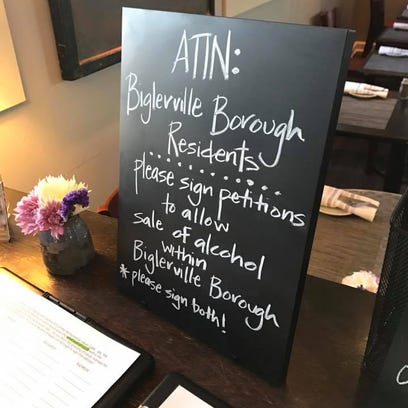 ATTN:
Biglerville Borough
Residents
please sign petitions
to allow
sale of alcohol
within
Biglerville Borough
* please sign both!